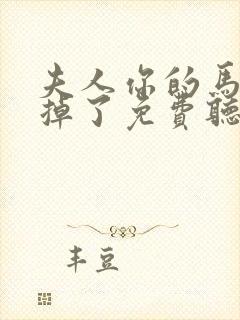 夫人你的馬
掉了免費聽
丰豆